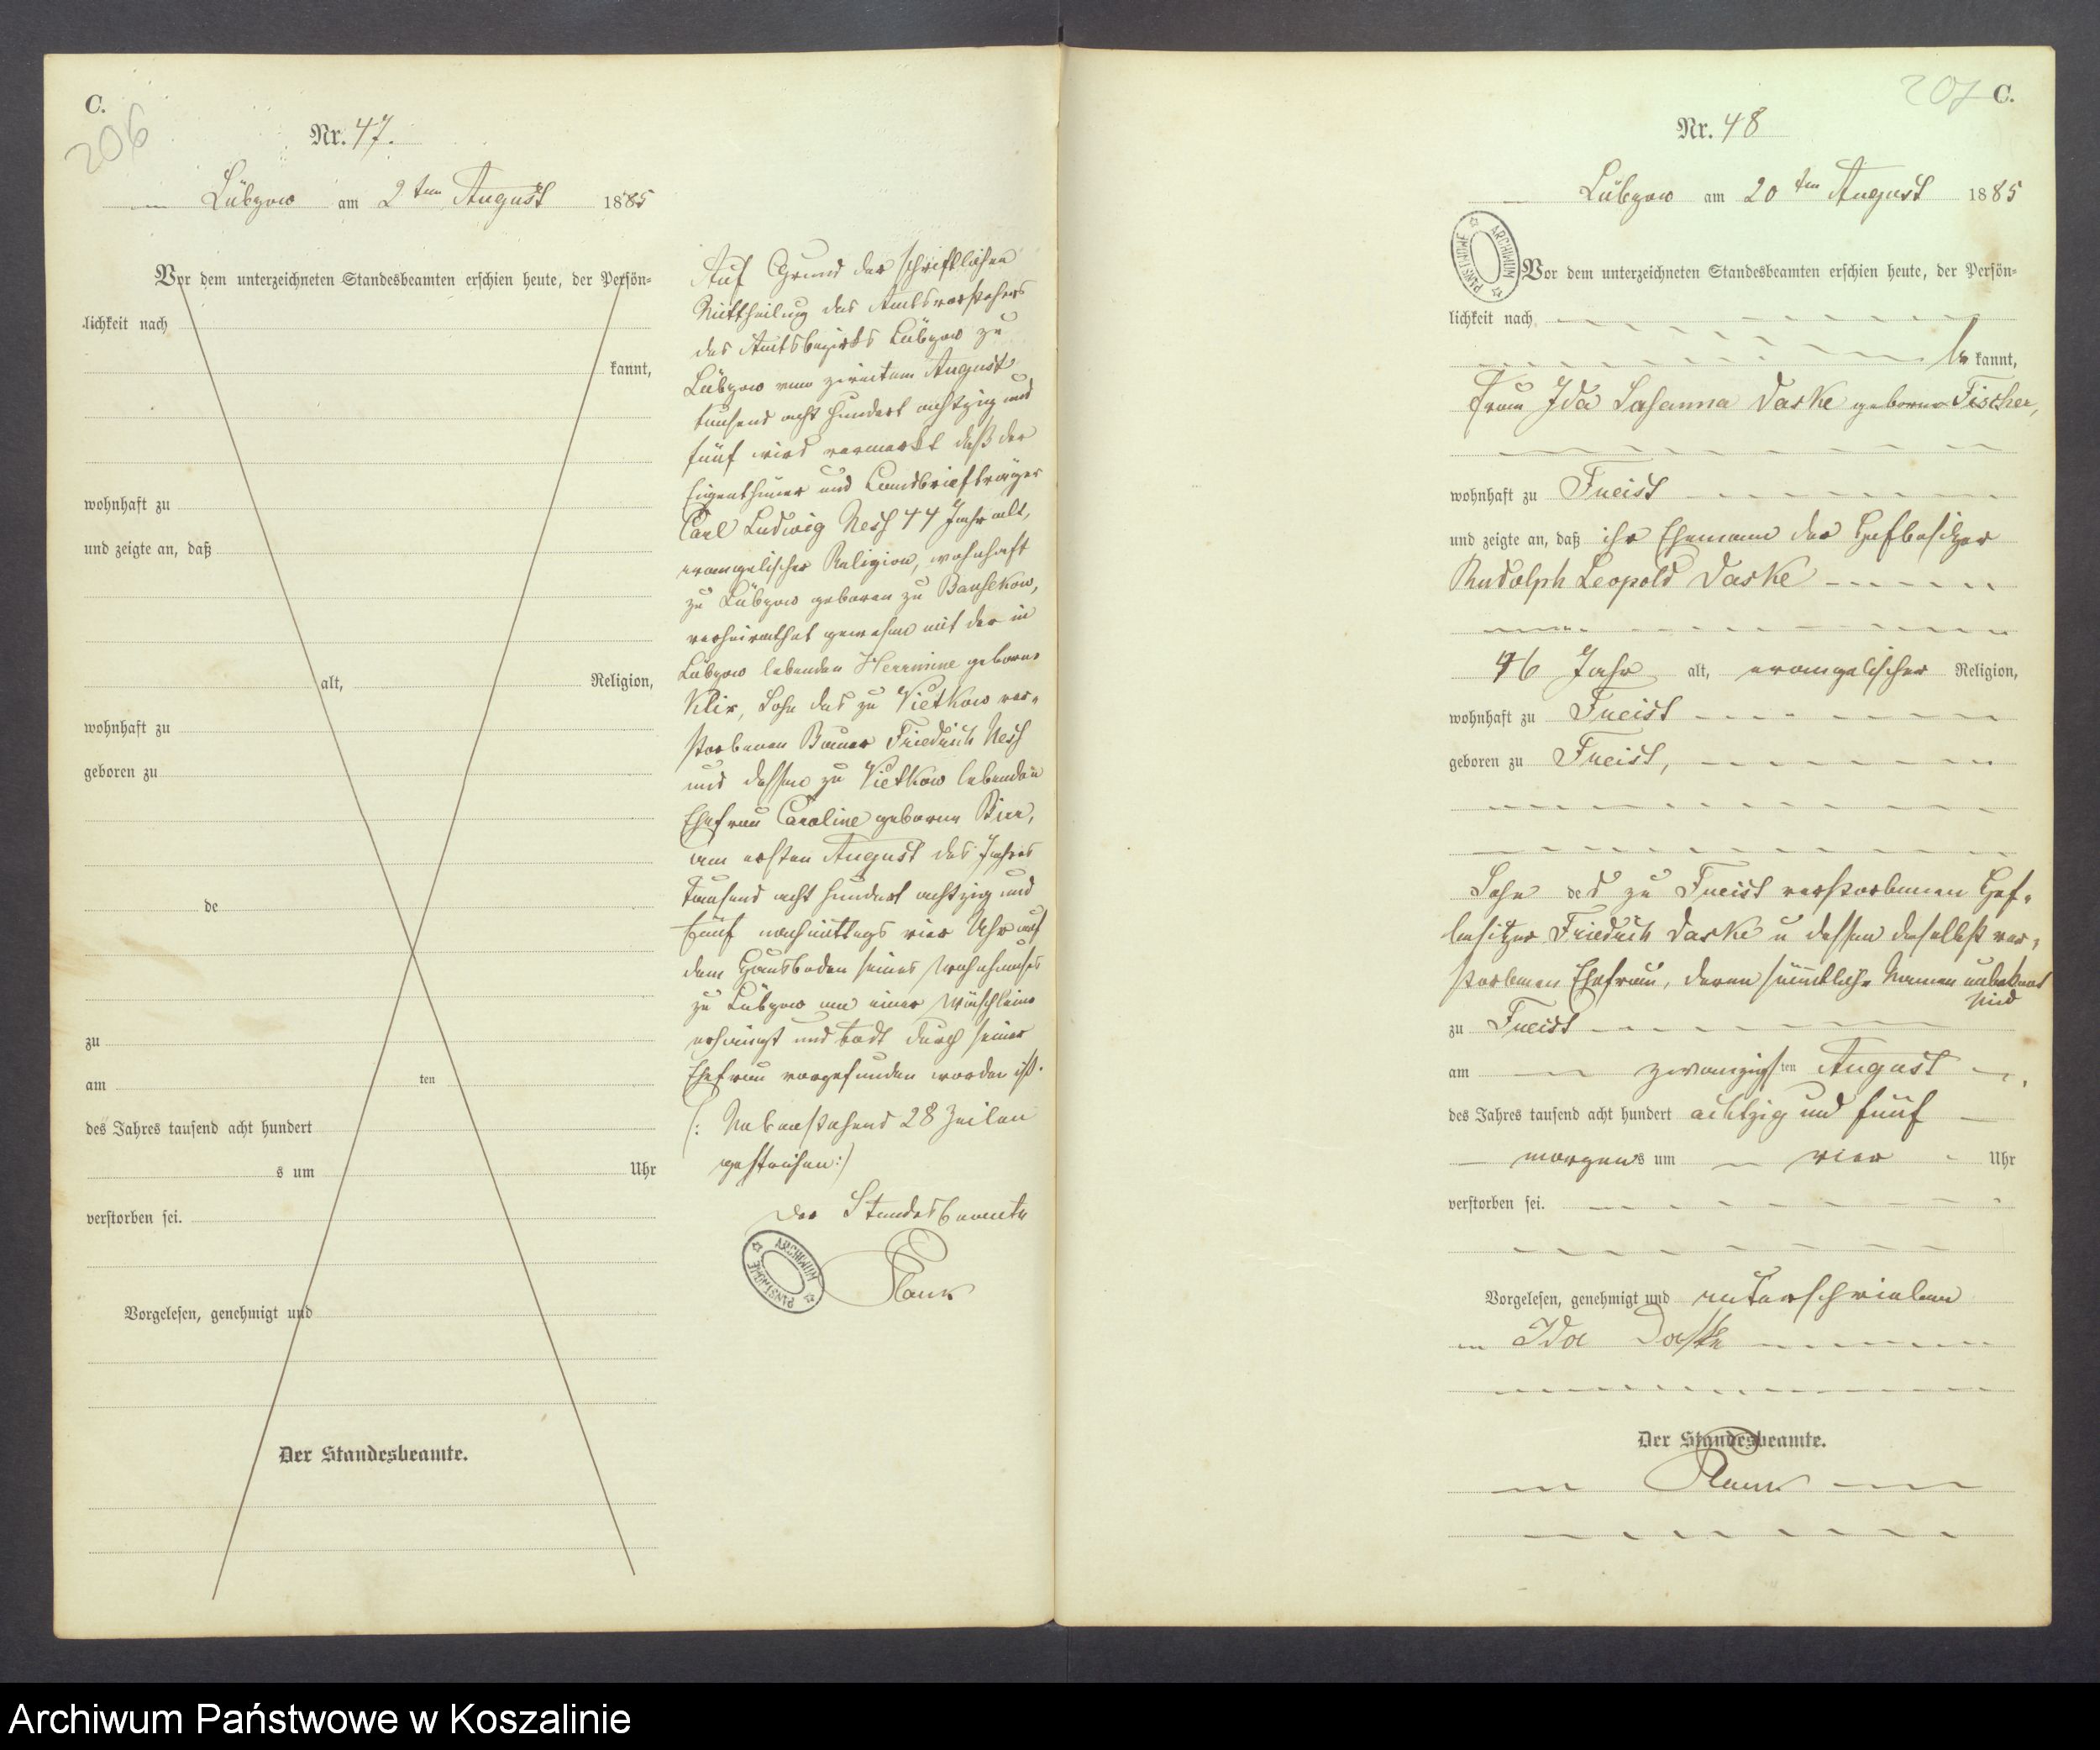 C.
206
Nr. 47.
Lübzow am 2ten August 1885
Vor dem unterzeichneten Standesbeamten erschien heute, der Persön-
lichkeit nach
kannt,
wohnhaft zu
und zeigte an, daß
alt, Religion,
wohnhaft zu
geboren zu
de
zu
am ten
des Jahres tausend acht hundert
s um Uhr
verstorben sei.
Vorgelesen, genehmigt und
Der Standesbeamte.
Auf Grund der schriftlichen
Mittheilung des Amtsvorstehers
des Amtsbezirks Lübzow zu
Lübzow vom zweiten August
tausend acht hundert achtzig und
fünf wird vermerkt daß der
Eigenthümer und Landbriefträger
Carl Ludwig Nesch 44 Jahr alt,
evangelischer Religion, wohnhaft
zu Lübzow geboren zu Bansekow,
verheirathet gewesen mit der in
Lübzow lebenden Herrmine geborne
Klix, Sohn des zu Vietkow ver-
storbenen Bauer Friedrich Nesch
und dessen zu Vietkow lebenden
Ehefrau Caroline geborne Birr,
am ersten August des Jahres
Tausend acht hundert achtzig und
fünf nachmittags vier Uhr auf
dem Hausboden seines Wohnhauses
zu Lübzow an einer Wäschleine
erhängt und todt durch seiner
Ehefrau vorgefunden worden ist.
(: Nebenstehend 28 Zeilen
gestrichen :)
Der Standesbeamte
Plank
ARCHIWUM PAŃSTWOWE
207 C.
Nr. 48
Lübzow am 20ten August 1885
ARCHIWUM PAŃSTWOWE
Vor dem unterzeichneten Standesbeamten erschien heute, der Persön-
lichkeit nach
bekannt,
Frau Ida Sasanna Daske geborne Fischer,
wohnhaft zu Freist
und zeigte an, daß ihr Ehemann der Hofbesitzer
Rudolph Leopold Daske
46 Jahr alt, evangelischer Religion,
wohnhaft zu Freist
geboren zu Freist,
Sohn des zu Freist verstorbenen Hof-
besitzer Friedrich Daske u dessen daselbst ver-
storbenen Ehefrau, deren sämtliche Namen unbekant
sind
zu Freist
am zwanzigsten August
des Jahres tausend acht hundert achtzig und fünf
morgens um vier Uhr
verstorben sei.
Vorgelesen, genehmigt und unterschrieben
Ida Daske
Der Standesbeamte.
Plank
Archiwum Państwowe w Koszalinie